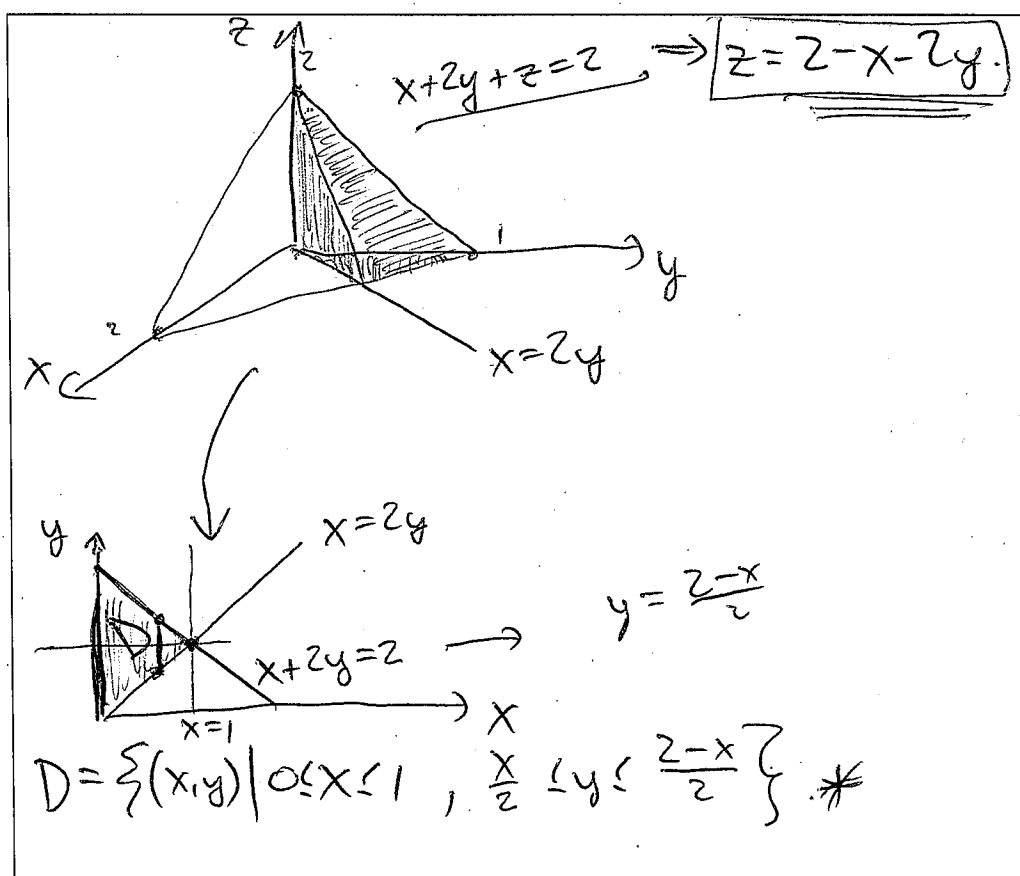 z
2
x+2y+z=2 ⇒ z=2-x-2y.
1
y
2
x
x=2y
y
x=2y
D
x+2y=2 → y=\frac{2-x}{2}
x=1
x
D={(x,y)|0≤x≤1, \frac{x}{2}≤y≤\frac{2-x}{2}}.*